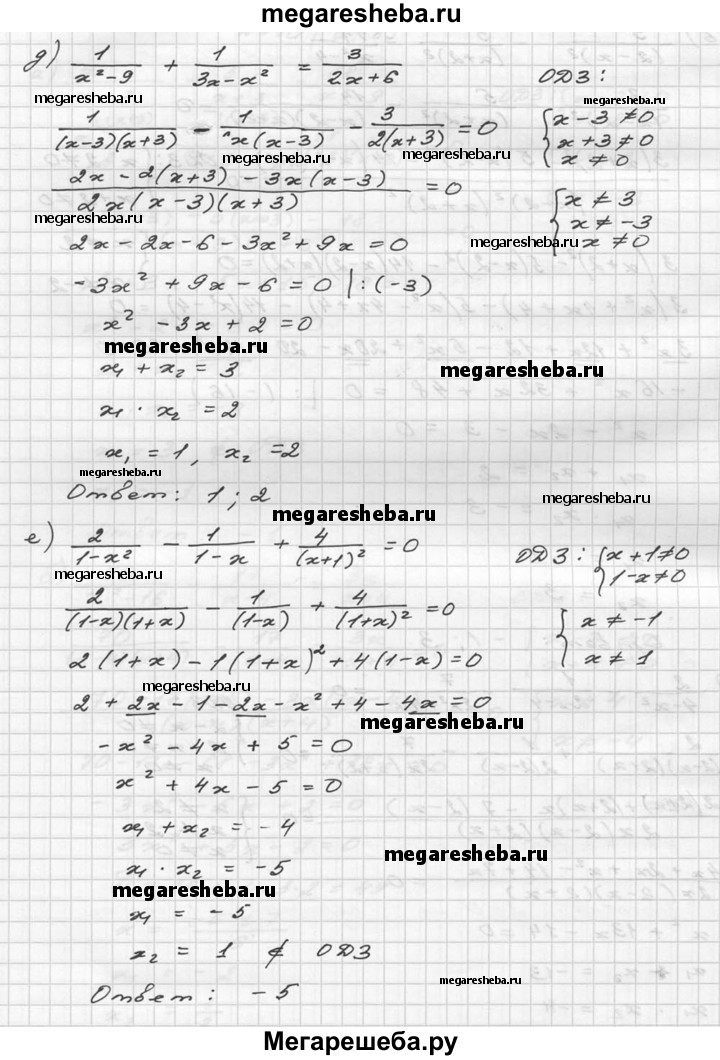 megaresheba.ru
д) 1/(x²-9) + 1/(3x-x²) = 3/(2x+6)
ОДЗ:
megaresheba.ru megaresheba.ru
1/((x-3)(x+3)) - 1/(x(x-3)) - 3/(2(x+3)) = 0
{x-3≠0
x+3≠0
x≠0
megaresheba.ru megaresheba.ru megaresheba.ru
(2x-2(x+3)-3x(x-3))/(2x(x-3)(x+3)) = 0
{x≠3
x≠-3
x≠0
megaresheba.ru megaresheba.ru
2x-2x-6-3x²+9x=0
-3x²+9x-6=0 |:(-3)
x²-3x+2=0
megaresheba.ru megaresheba.ru
x₁+x₂=3
x₁·x₂=2
x₁=1, x₂=2
megaresheba.ru
Ответ: 1; 2
megaresheba.ru
megaresheba.ru
е) 2/(1-x²) - 1/(1-x) + 4/(x+1)² = 0
ОДЗ: {x+1≠0
1-x≠0
megaresheba.ru megaresheba.ru
2/((1-x)(1+x)) - 1/(1-x) + 4/(1+x)² = 0
{x≠-1
x≠1
2(1+x)-1(1+x)²+4(1-x)=0
megaresheba.ru megaresheba.ru
2+2x-1-2x-x²+4-4x=0
megaresheba.ru
-x²-4x+5=0
x²+4x-5=0
x₁+x₂=-4
megaresheba.ru
x₁·x₂=-5
megaresheba.ru
x₁=-5
x₂=1 ∉ ОДЗ
megaresheba.ru
Ответ: -5
Мегарешеба.ру